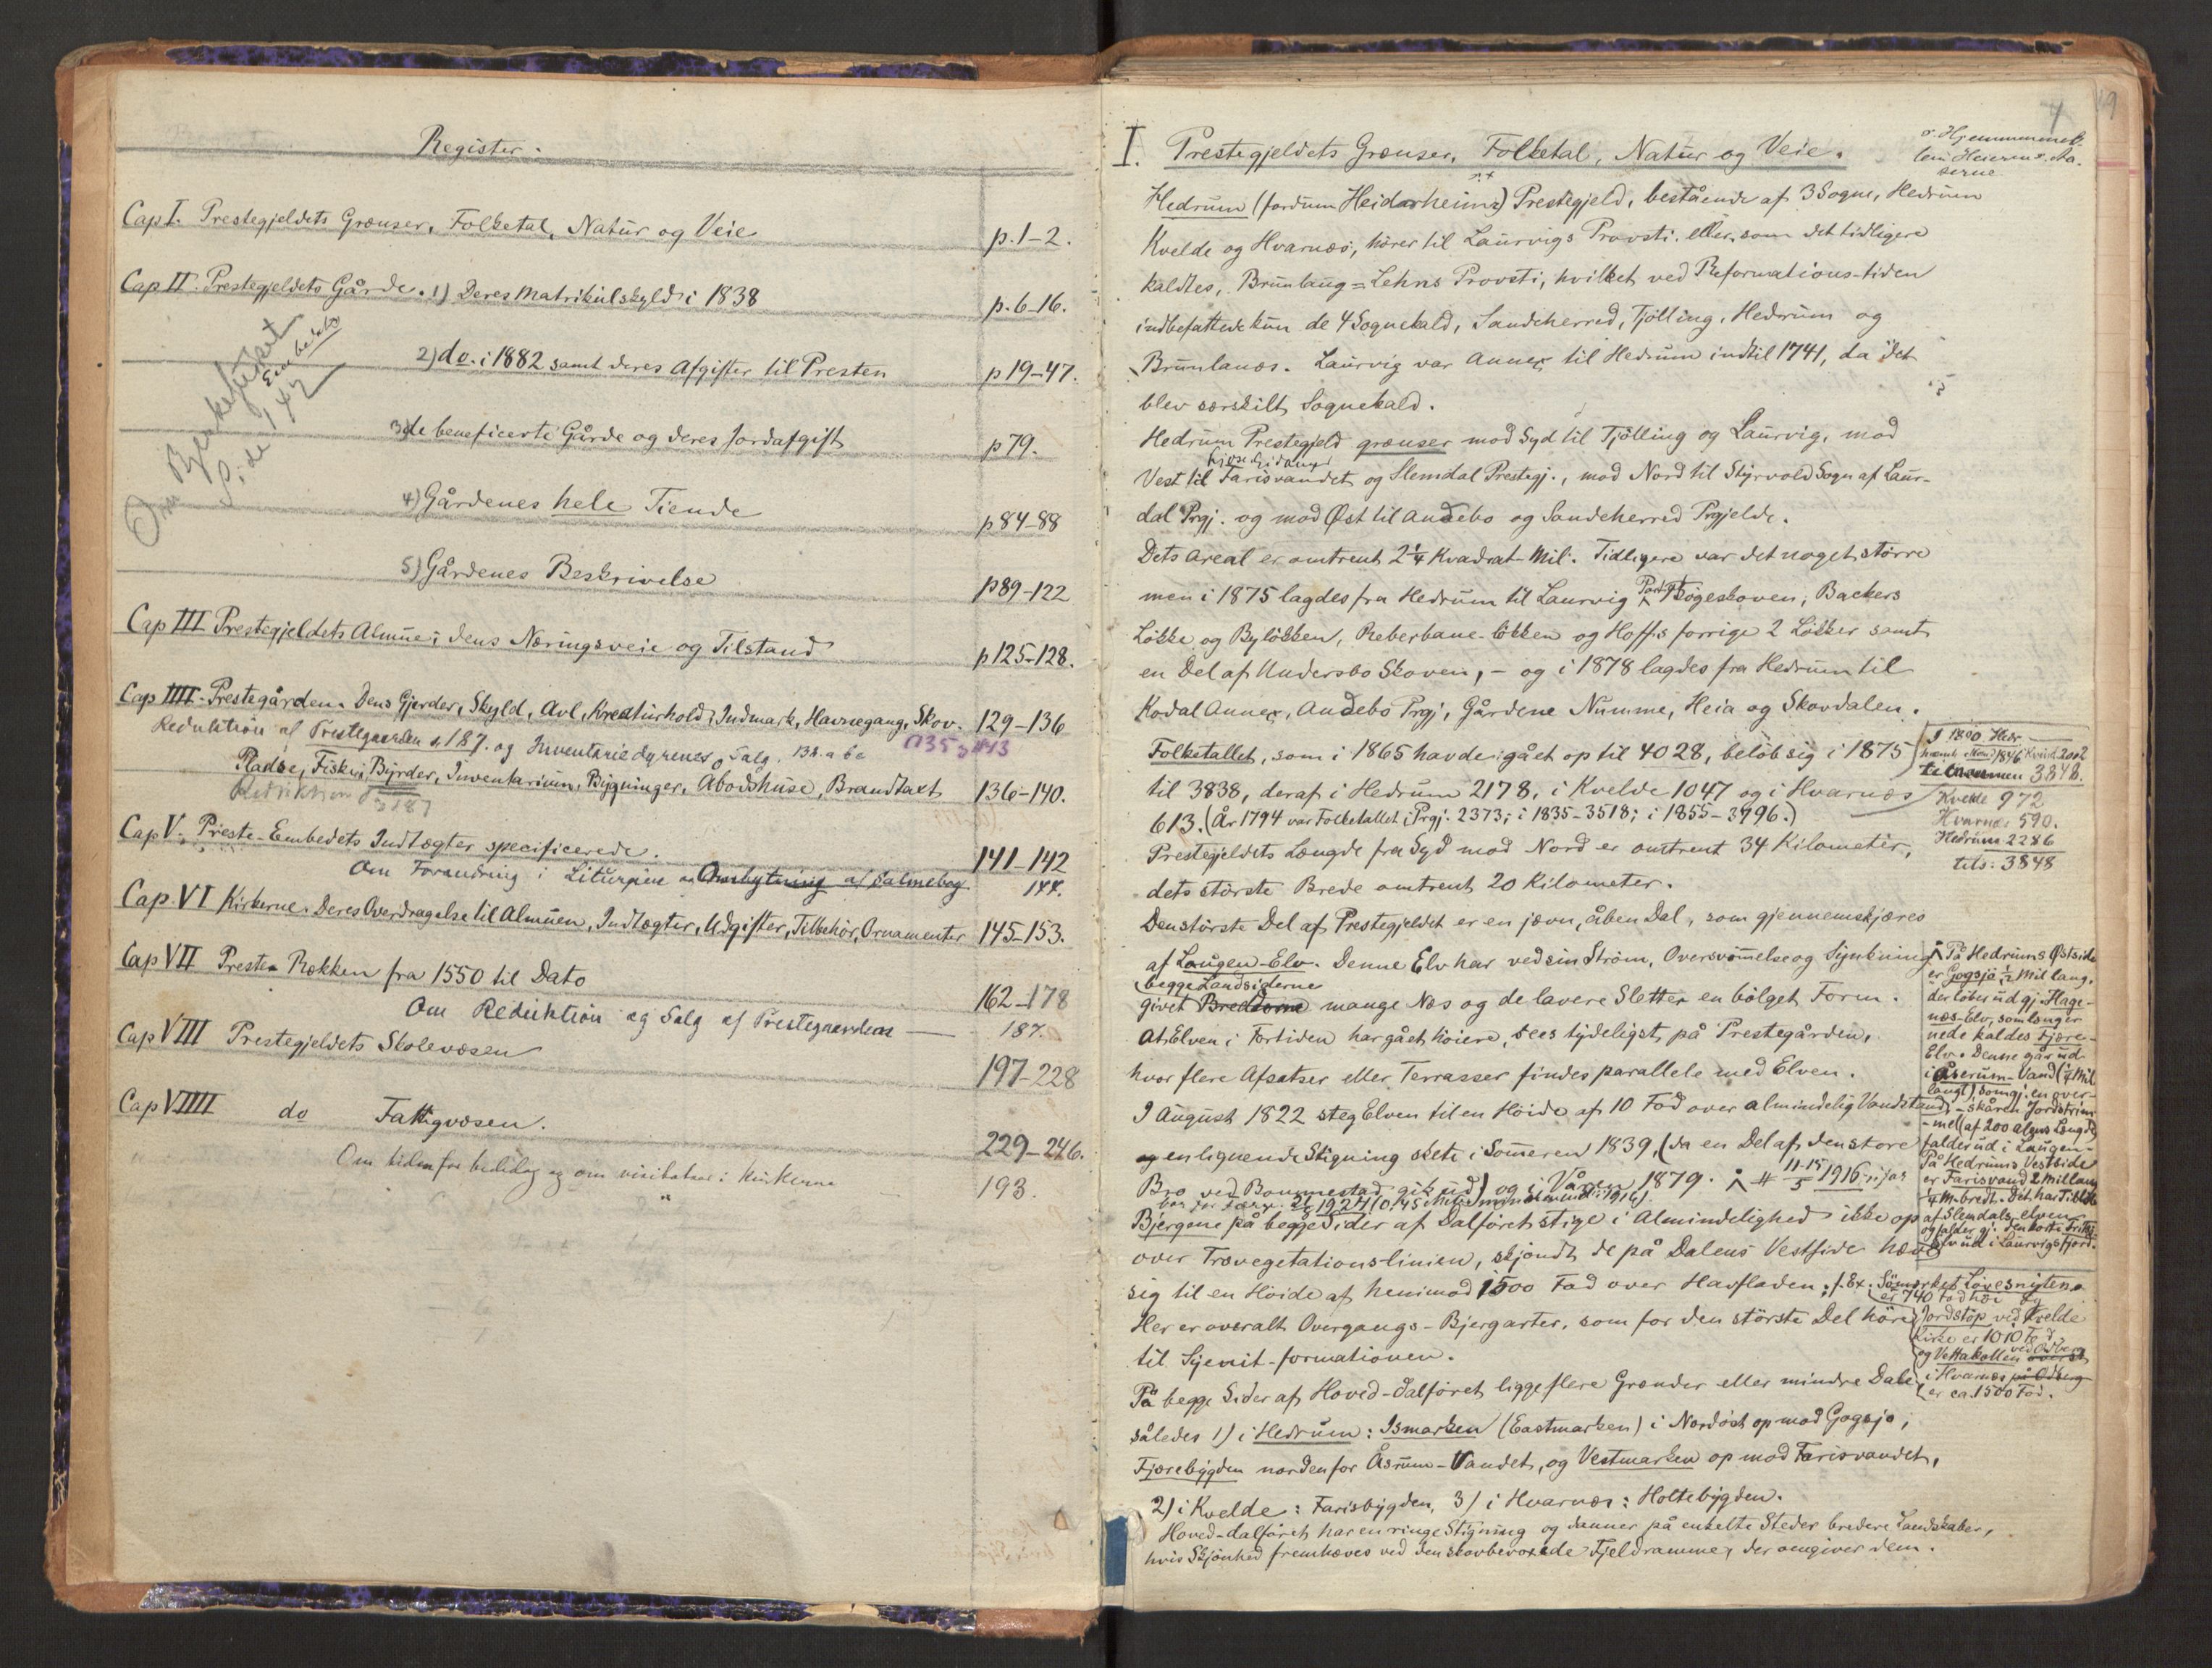 Register.
Cap I. Prestegjeldets Grænser, Folketal, Natur og Veie p. 1-2.
Cap II. Prestegjeldets Gårde. 1) Deres Matrikulskyld i 1838 p. 6-16.
2) do. i 1882 samt deres Afgifter til Presten p 19-47.
Om
Embedets
Side 142
3) de beneficerte Gårde og deres Jordafgift p 79.
4) Gårdenes hele Tiende p 84-88
5) Gårdenes Beskrivelse p 89-122
Cap III Prestegjeldets Almue; dens Næringsveie og Tilstand p 125-128.
Cap IIII. Prestegården. Dens Gjerder, Skyld, Avl, Kreaturhold, Indmark, Havnegang, Skov. 129-136
Reduktion af Prestegaarden s. 187. og Inventariedyrenes Salg. 138. a
Pladse, Fiskeri, Byrder, Inventarium, Bygninger, Abodshuse, Brandtaxt 136-140.
187
Cap V. Preste-Embedets Indtægter specificerede. 141-142
Om Forandring i Liturgien og Ombytning af Salmebog 144.
Cap. VI Kirkerne. Deres Overdragelse til Almuen, Indtægter, Udgifter, Tilbehør, Ornamenter 145-153.
Cap VII Preste Rækken fra 1550 til Dato 162-178
Om Reduktion og Salg af Prestegaarden 187.
Cap VIII Prestegjeldets Skolevæsen 197-228
Cap VIIII do Fattigvæsen. 229-246.
Om tiden for og om visitatser i Kirkerne 193.
I. Prestegjeldets Grænser, Folketal, Natur og Veie.
Hedrum (fordum Heidarheimr) Prestegjeld, bestående af 3 Sogne, Hedrum
Kvelde og Hvarnæs, hører til Laurvigs Provsti, eller, som det tidligere
kaldtes, Brunlaug=Lehns Provsti, hvilket ved Reformations-tiden
indbefattede kun de 4 Sognekald, Sandeherred, Tjölling, Hedrum og
Brunlanæs. Laurvig var Annex til Hedrum indtil 1741, da det
blev særskilt Sognekald.
Hedrum Prestegjeld grænser mod Syd til Tjölling og Laurvig, mod
Vest til Farisvandet og Slemdal Prestegj., mod Nord til Styrvold Sogn af Laur-
dal Prgj. og mod Øst til Andebo og Sandeherred Prgjelde.
Dets Areal er omtrent 2¼ Kvadrat-Mil. Tidligere var det noget större
men i 1875 lagdes fra Hedrum til Laurvig Bögeskoven, Backers
Løkke og Byløkken, Reberbane-løkken og Hoffs forrige 2 Løkker samt
en Del af Undersbo Skoven, - og i 1878 lagdes fra Hedrum til
Kodal Annex, Andebo Prgj, Gårdene Numme, Heia og Skovdalen.
Folketallet, som i 1865 havde gået op til 4028, beløb sig i 1875
til 3838, deraf i Hedrum 2178, i Kvelde 1047 og i Hvarnæs
613. (År 1794 var Folketallet i Prgj. 2373; i 1835-3518; i 1855-3996.)
Mænd 1846 Kvind. 2002
tilsammen 3848.
Kvelde 972
Hvarnæs 590.
Hedrum 2286
tils: 3848
Prestegjeldets Længde fra Syd mod Nord er omtrent 34 Kilometer,
dets største Brede omtrent 20 Kilometer.
Den störste Del af Prestegjeldet er en jævn, åben Dal, som gjennemskjæres
af Laugen-Elv. Denne Elv har ved sin Strøm, Oversvømmelse og Synkning
begge Landsiderne
givet Bredderne mange Næs og de lavere Sletter en bölget Form.
At Elven i Fortiden har gået höiere, sees tydeligst på Prestegården,
hvor flere Afsatser eller Terrasser findes parallele med Elven.
I August 1822 steg Elven til en Höide af 10 Fod over almindelig Vandstand,
og en lignende Stigning skete i Sommeren 1839, (da en Del af den store
Bro ved Bommestad gik ud) og i Våren 1879. 11-15/5 1916
Bjergene på begge Sider af Dalføret stige i Almindelighed ikke op
over Trævegetationslinien, skjøndt de på Dalens Vestside hæve
sig til en Höide af henimod 1500 Fod over Havfladen; f. Ex.
Her er overalt Overgangs-Bjergarter, som for den störste Del höre
til Syenit-formationen.
På begge Sider af Hoved-dalføret ligge flere Grænder eller mindre Dale,
således 1) i Hedrum: Ismarken (Eastmarken) i Nordöst op mod Gogsjø,
Fjærebygden nordenfor Åsrum-Vandet, og Vestmarken op mod Farisvandet,
2) i Kvelde: Farisbygden, 3) i Hvarnæs: Holtebygden.
Hoved-dalføret har en ringe Stigning og danner på enkelte Steder bredere Landskaber,
hvis Skjönhed fremhæves ved den skovbevoxede Fjeldramme, der omgiver dem.
På Hedrums Østside
er Gogsjø ½ Mil lang,
der løber ud gj. Hage-
næs-Elv, som længer
nede kaldes Fjære-
Elv. Denne går ud
i Åsrum-Vand (¼ Mil
langt), som gj. en over-
skåren Jordstrim-
mel (af 200 alens Længde)
falder ud i Laugen.
På Hedrums Vestside
er Farisvand 2 Mil lang
¼ M. bredt. Det har Tilløb
af Slemdals elven
og falder gj. den korte
Elv ud i Laurvigsfjord.
er 740 Fod høi og
Jordstøp ved Kvelde
Kirke er 1010 Fod,
og Vettakollen
i Hvarnæs på Odberg
er ca. 1500 Fod.